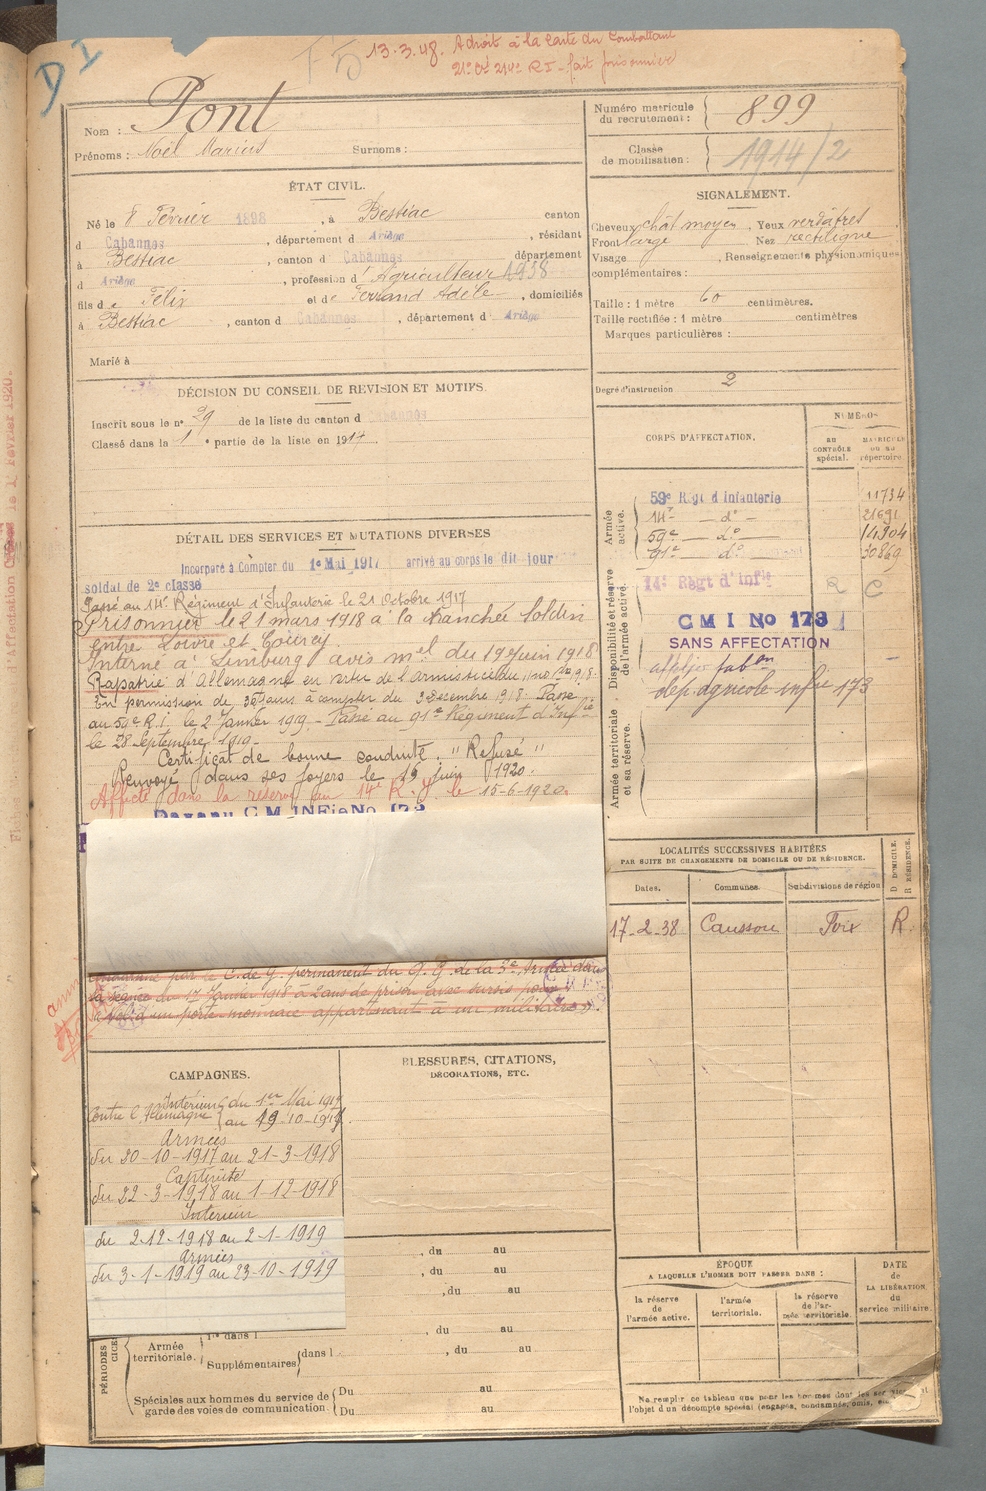 D I
F5 13.3.48. A droit à la Carte du Combattant
21e Cie 214e RI - fait prisonnier
Nom : Pont
Prénoms : Noël Marius Surnoms :
Numéro matricule
du recrutement : 899
Classe
de mobilisation : 1914/2
ÉTAT CIVIL.
Né le 8 Février 1898, à Bestiac canton
d Cabannes, département d Ariège, résidant
à Bestiac, canton d Cabannes département
d Ariège, profession d'Agriculteur 1938
fils de Félix et de Ferrand Adèle, domiciliés
à Bestiac, canton d Cabannes, département d Ariège
Marié à
SIGNALEMENT.
Cheveux chât moyen, Yeux verdâtres
Front large Nez rectiligne
Visage , Renseignements physionomiques
complémentaires :
Taille : 1 mètre 60 centimètres.
Taille rectifiée : 1 mètre centimètres
Marques particulières :
Degré d'instruction 2
DÉCISION DU CONSEIL DE REVISION ET MOTIFS.
Inscrit sous le no 29 de la liste du canton d Cabannes
Classé dans la 1e partie de la liste en 1917.
DÉTAIL DES SERVICES ET MUTATIONS DIVERSES
Incorporé à Compter du 1e Mai 1917 arrivé au corps le dit jour
soldat de 2e classe
Passé au 14e Régiment d'Infanterie le 21 Octobre 1917
Prisonnier le 21 mars 1918 à la tranchée Soldin
entre Loivre et Courcy
Interné à Limburg avis mel du 19 Juin 1918
Rapatrié d'Allemagne en vertu de l'armistice du 11 nov 1918
En permission de 30 jours à compter du 2 Décembre 1918 - Passé
au 59e R.I. le 2 Janvier 1919 - Passé au 91e Régiment d'Infie
le 28 Septembre 1919 -
Certificat de bonne conduite. "Refusé"
Renvoyé dans ses foyers le 15 juin 1920.
Affecté dans la réserve au 14e R.I. le 15-6-1920.
C M INFie No 173
par le C. de G. permanent du Q. G. de la 3e Armée dans
sa séance du 17 Janvier 1918 à 2 ans de prison avec sursis pour
a volé un porte monnaie appartenant à un militaire".
CORPS D'AFFECTATION.
NUMÉROS
AU
CONTRÔLE
spécial.
MATRICULE
OU AU
répertoire.
Armée
active.
59e Régt d Infanterie 11734
14e - do - 21691
59e - do - 14904
91e - do 30869
Disponibilité et réserve
de l'armée active.
14e Régt d'Infie R C
C M I No 173
SANS AFFECTATION
dép. agricole infie 173
Armée territoriale
et sa réserve.
LOCALITÉS SUCCESSIVES HABITÉES
PAR SUITE DE CHANGEMENTS DE DOMICILE OU DE RÉSIDENCE.
D DOMICILE.
R RÉSIDENCE.
Dates. Communes. Subdivisions de région
17-2-38 Caussou Foix R.
CAMPAGNES.
Intérieur du 1er Mai 1917
Contre l'Allemagne au 19-10-1917.
Armées
du 20-10-1917 au 21-3-1918
Captivité
du 22-3-1918 au 1-12-1918
Intérieur
du 2-12-1918 au 2-1-1919
Armées
du 3-1-1919 au 23-10-1919
BLESSURES, CITATIONS,
DÉCORATIONS, ETC.
, du au
, du au
, du au
, du au
PÉRIODES
Armée
territoriale.
dans l
Supplémentaires dans l , du au
Spéciales aux hommes du service de
garde des voies de communication.
Du au
Du au
ÉPOQUE
A LAQUELLE L'HOMME DOIT PASSER DANS :
la réserve
de
l'armée active.
l'armée
territoriale.
la réserve
de l'ar-
mée territoriale.
DATE
de
LA LIBÉRATION
du
service militaire.
Ne remplir ce tableau que pour les hommes dont les services
l'objet d'un décompte spécial (engagés, condamnés, omis,
d'Affectation le 1 Février 1920.